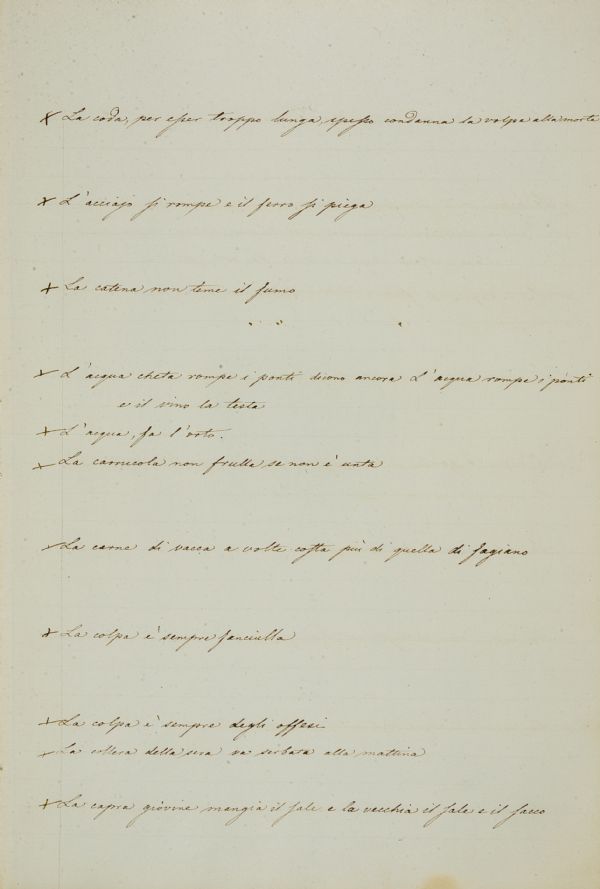 × La coda, per esser troppo lunga, spesso condanna la volpa alla morte
× L'acciajo si rompe e il ferro si piega
× La catena non teme il fumo
× L'acqua cheta rompe i ponti dicono ancora L'acqua rompe i ponti
e il vino la testa
× L'acqua, fa l'orto.
× La carrucola non frulla, se non è unta
× La carne di vacca a volte costa più di quella di fagiano
× La colpa è sempre fanciulla
× La colpa è sempre degli offesi
× La collera della sera va serbata alla mattina
× La capra giovine mangia il sale e la vecchia il sale e il sacco